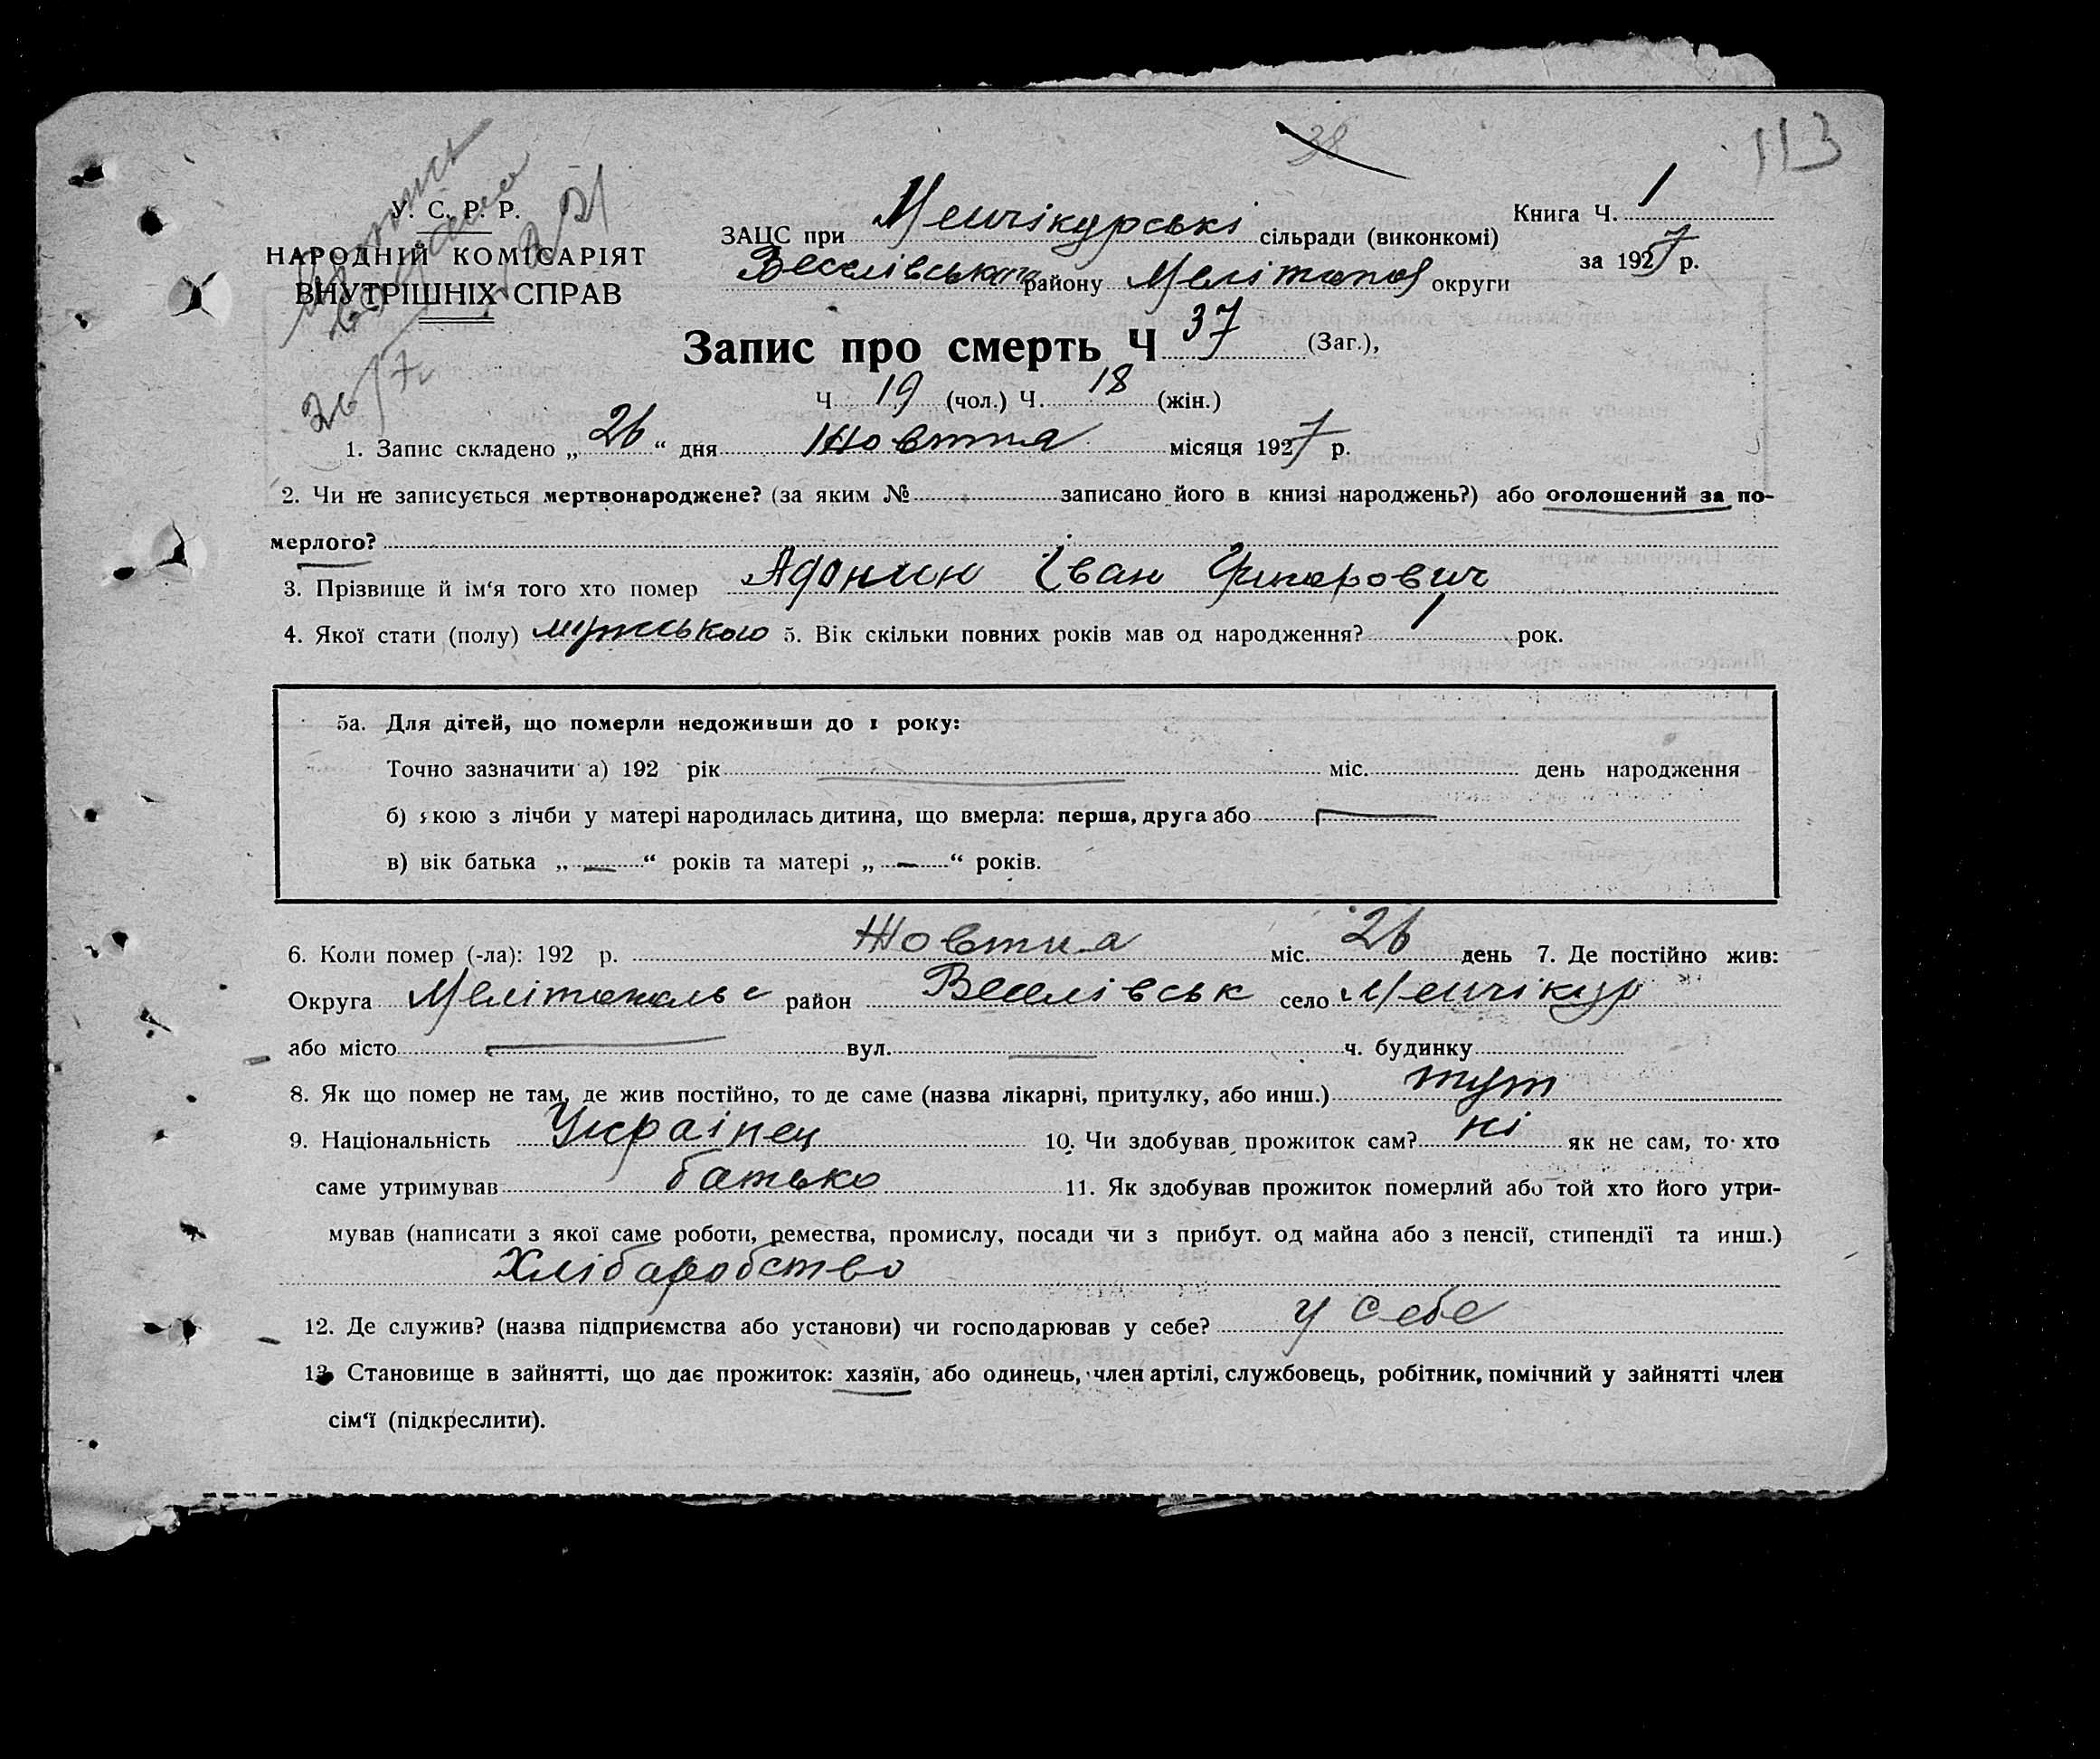 38
113
У. С. Р. Р.
НАРОДНІЙ КОМІСАРІЯТ
ВНУТРІШНІХ СПРАВ
26/7
ЗАЦС при Менчікурські сільради (виконкомі)
Веселівського району Мелітопол округи
Книга Ч. 1
за 1927 р.
Запис про смерть Ч 37 (Заг.),
Ч 19 (чол.) Ч. 18 (жін.)
1. Запис складено „26“ дня Жовтня місяця 1927 р.
2. Чи не записується мертвонароджене? (за яким № записано його в книзі народжень?) або оголошений за по-
мерлого?
3. Прізвище й ім‘я того хто помер Адонин Іван
4. Якої стати (полу) мужською 5. Вік скільки повних років мав од народження? 1 рок.
5а. Для дітей, що померли недоживши до 1 року:
Точно зазначити а) 192 рік — міс. день народження
б) якою з лічби у матері народилась дитина, що вмерла: перша, друга або —
в) вік батька „—“ років та матері „—“ років.
6. Коли помер (-ла): 192 р. Жовтня міс. 26 день 7. Де постійно жив:
Округа Мелітопальс район Веселівськ село Менчікур
або місто — вул. — ч. будинку
8. Як що помер не там, де жив постійно, то де саме (назва лікарні, притулку, або инш.) тут
9. Національність Украінец 10. Чи здобував прожиток сам? ні як не сам, то хто
саме утримував батько 11. Як здобував прожиток померлий або той хто його утри-
мував (написати з якої саме роботи, ремества, промислу, посади чи з прибут. од майна або з пенсії, стипендії та инш.)
Хлібаробство
12. Де служив? (назва підприємства або установи) чи господарював у себе? у себе
13. Становище в зайнятті, що дає прожиток: хазяїн, або одинець, член артілі, службовець, робітник, помічний у зайнятті член
сім‘ї (підкреслити).